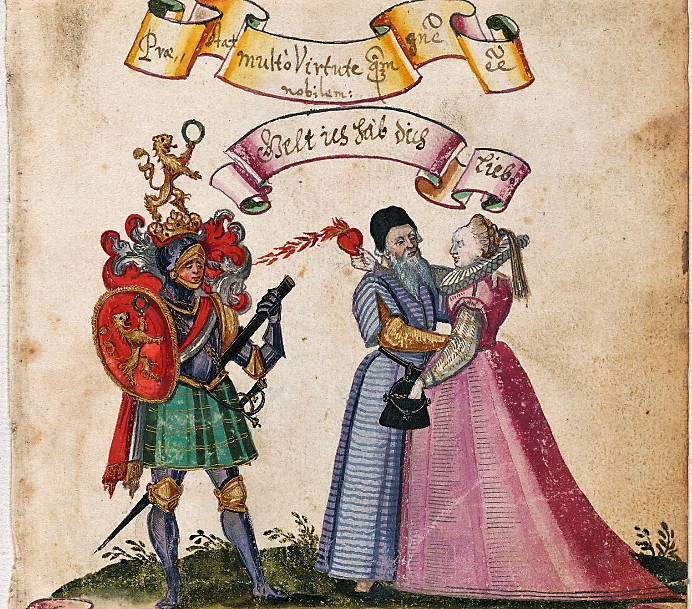 Præ,, stat multò Virtute q̃m gñẽ ẽẽ
nobilem:
Welt ich hab dich Lieb.